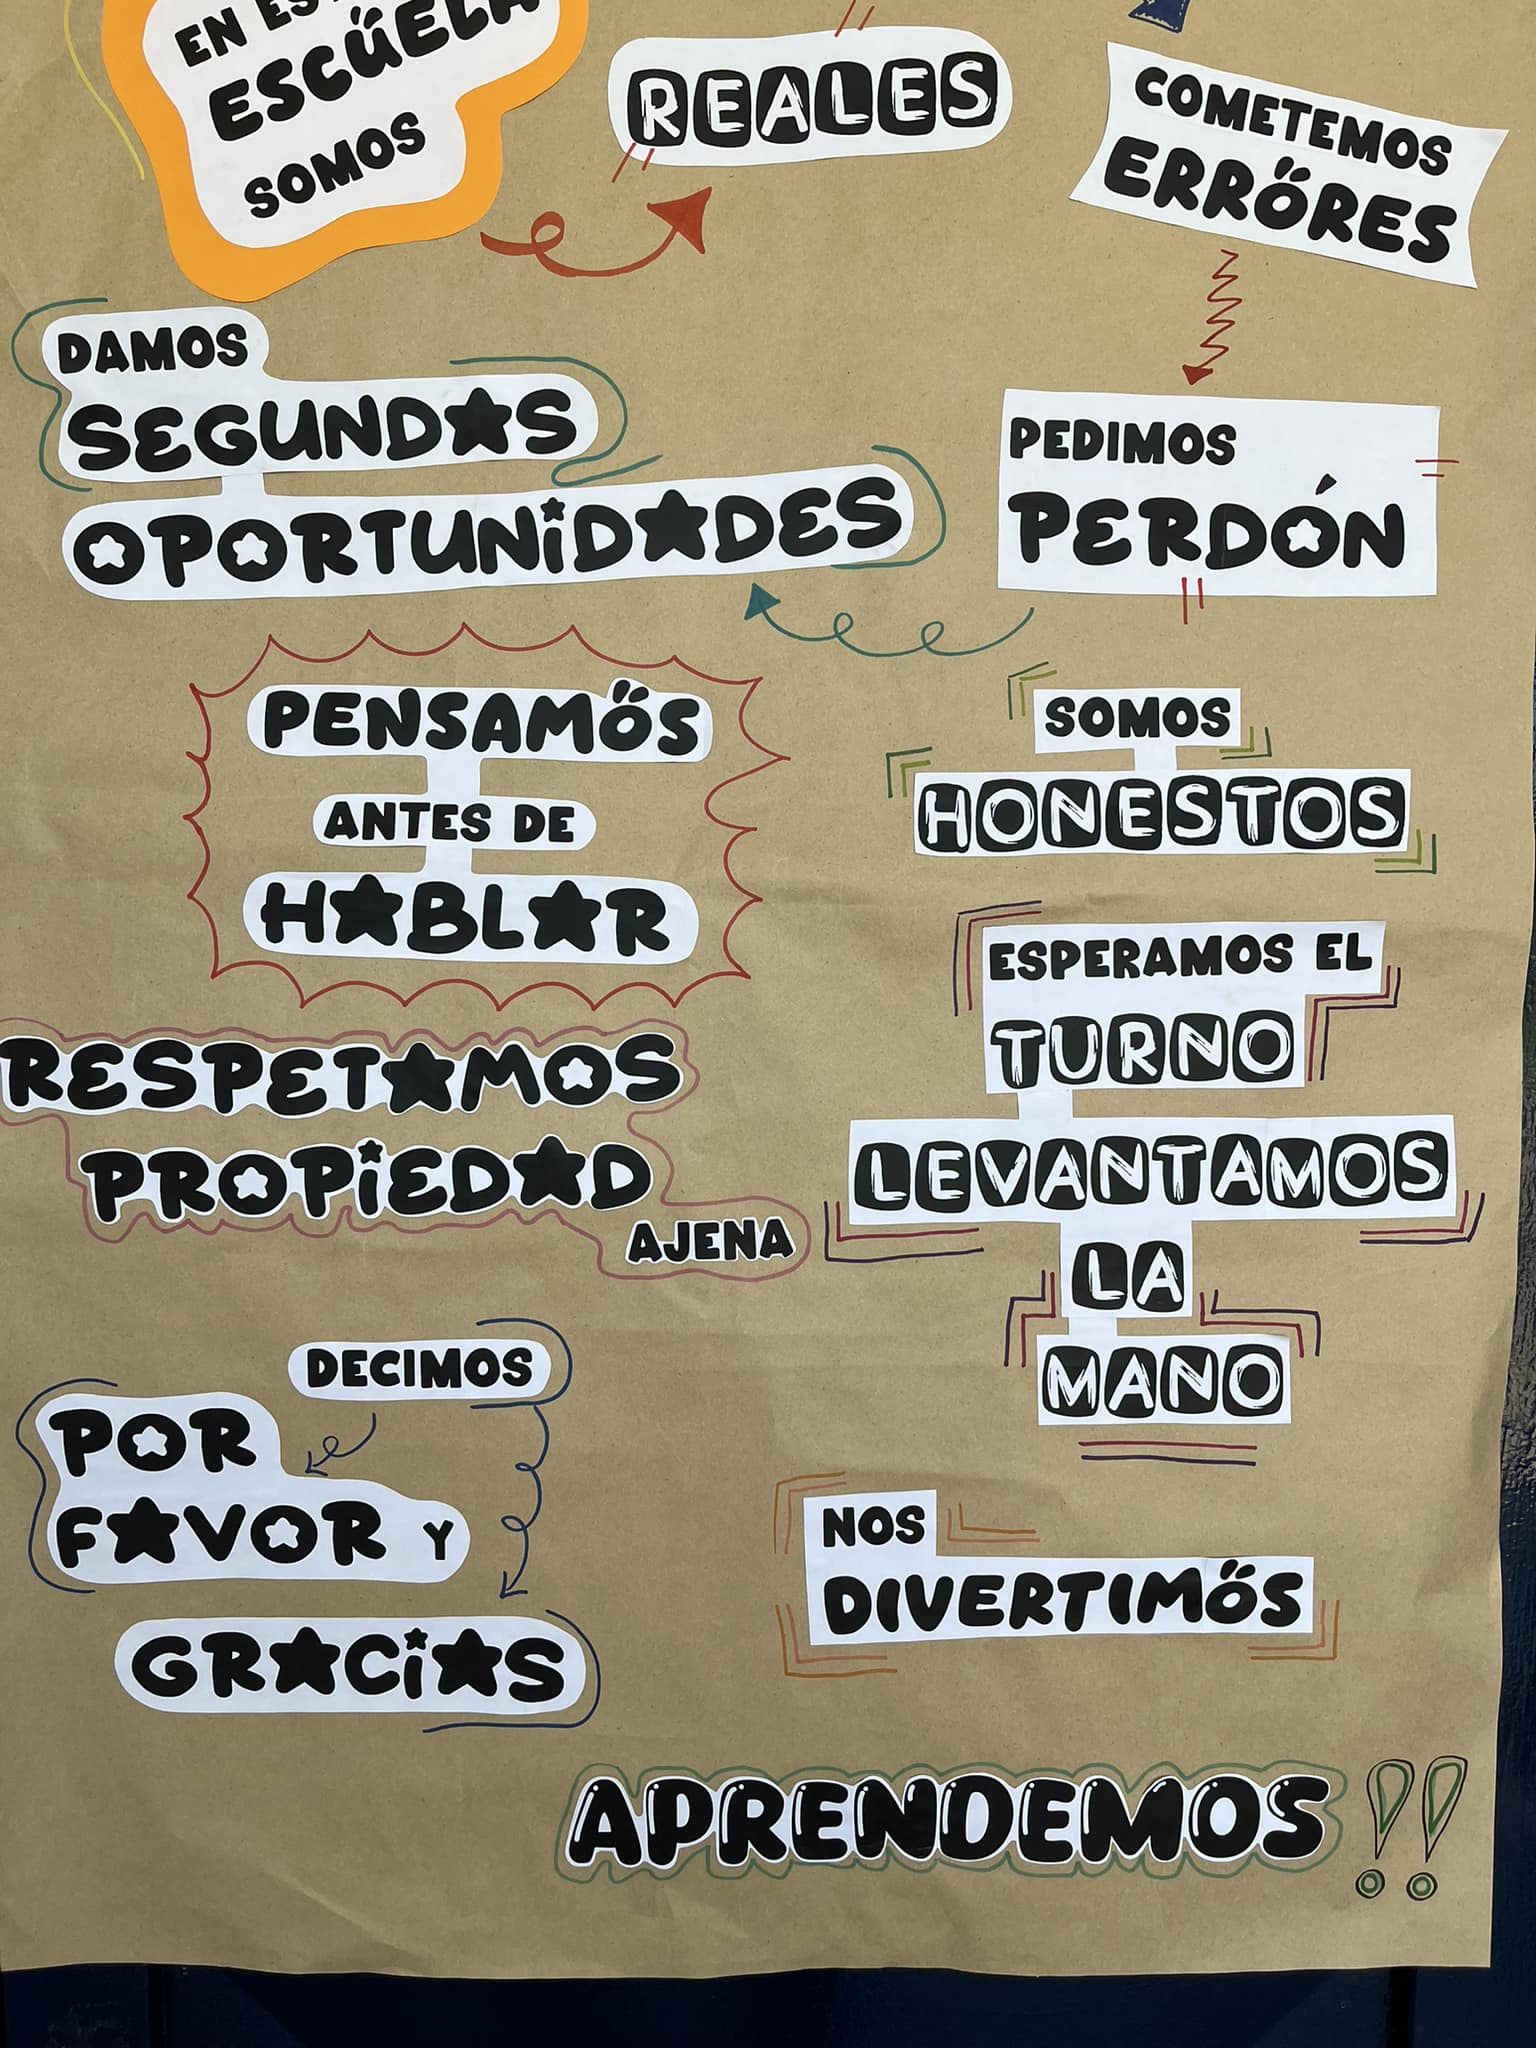 EN
ESCÜELA
SOMOS
REALES
COMETEMOS
ERRÖRES
PEDIMOS
PERDÓN
DAMOS
SEGUNDAS
OPORTUNIDADES
PENSAMÖS
ANTES DE
HABLAR
SOMOS
HONESTOS
ESPERAMOS EL
TURNO
LEVANTAMOS
LA
MANO
RESPETAMOS
PROPIEDAD
AJENA
DECIMOS
POR
FAVOR Y
GRACIAS
NOS
DIVERTIMÖS
APRENDEMOS!!